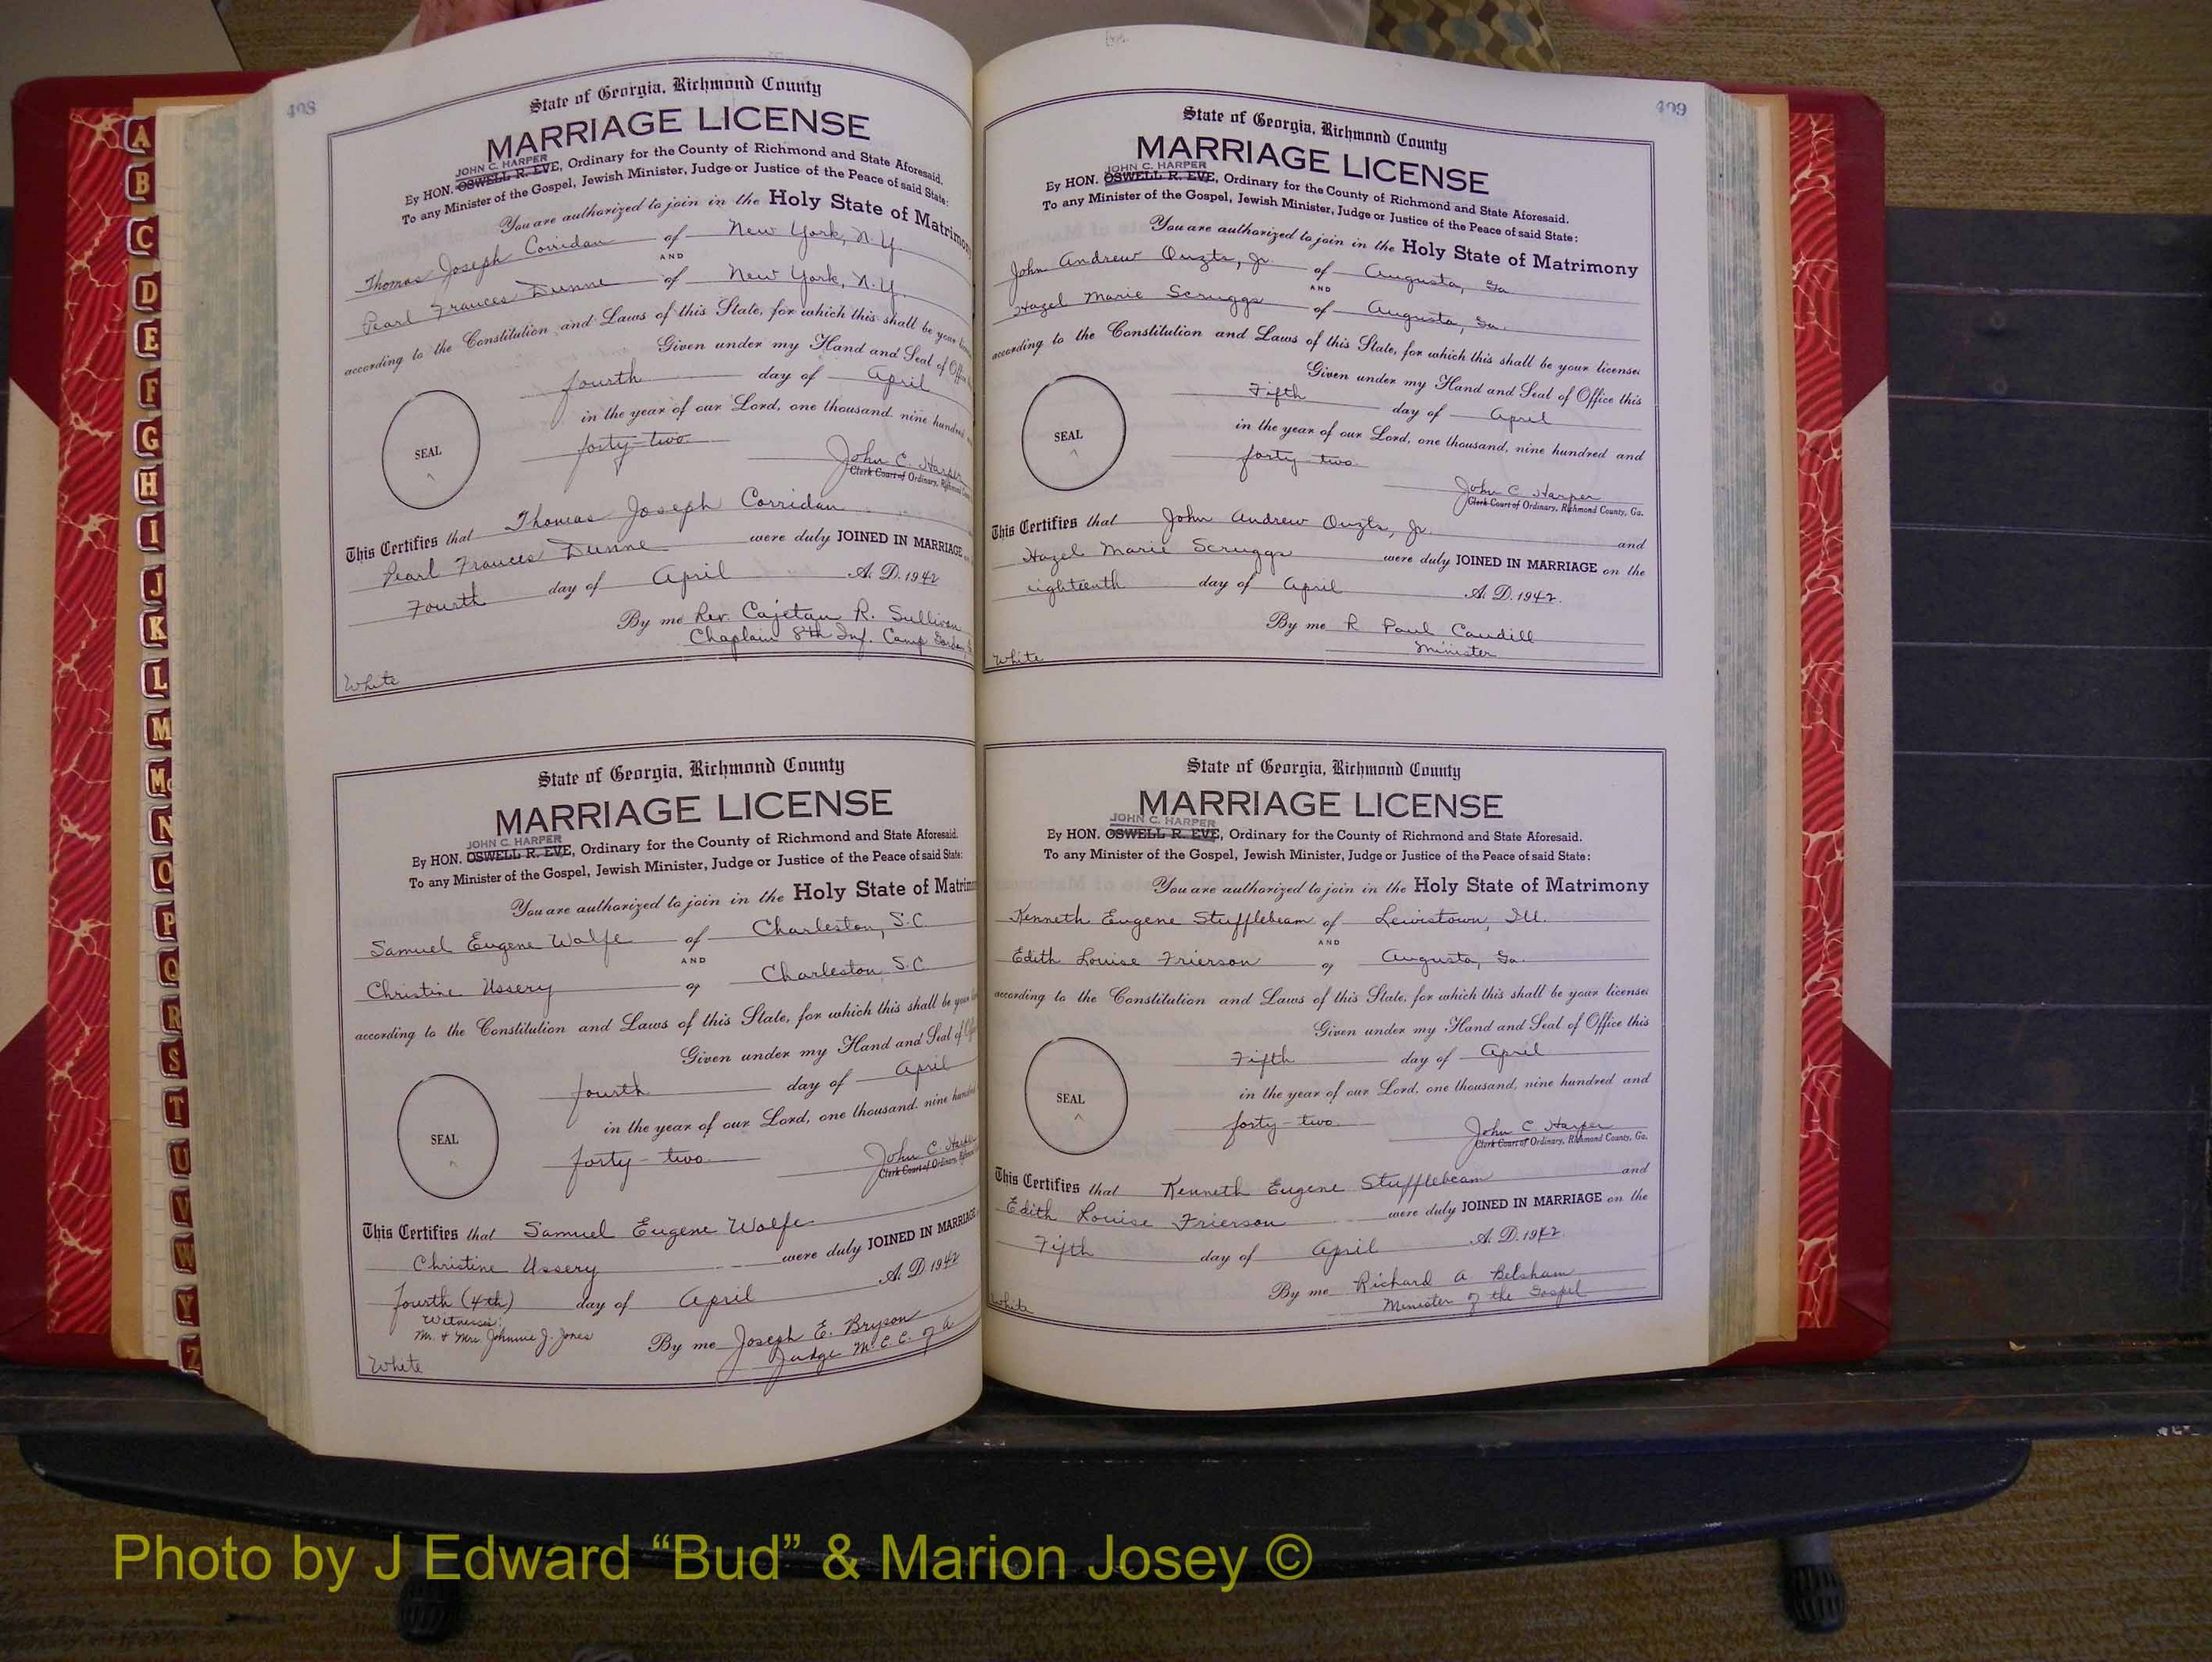 408
State of Georgia, Richmond County
MARRIAGE LICENSE
JOHN C. HARPER
By HON. OSWELL R. EVE, Ordinary for the County of Richmond and State Aforesaid.
To any Minister of the Gospel, Jewish Minister, Judge or Justice of the Peace of said State:
You are authorized to join in the Holy State of Matrimony
Thomas Joseph Corridan of New York, N.Y.
AND
Pearl Frances Dunne of New York, N.Y.
according to the Constitution and Laws of this State, for which this shall be your
Given under my Hand and Seal of Office
fourth day of April
in the year of our Lord, one thousand, nine hundred
forty-two
SEAL
John C. Harper
Clerk Court of Ordinary, Richmond
This Certifies that Thomas Joseph Corridan
Pearl Frances Dunne were duly JOINED IN MARRIAGE
Fourth day of April A. D. 1942
By me Rev. Cajetan R. Sullivan
Chaplain 8th Inf. Camp Gordon
White
State of Georgia, Richmond County
MARRIAGE LICENSE
JOHN C. HARPER
By HON. OSWELL R. EVE, Ordinary for the County of Richmond and State Aforesaid.
To any Minister of the Gospel, Jewish Minister, Judge or Justice of the Peace of said State:
You are authorized to join in the Holy State of Matrim
Samuel Eugene Wolfe of Charleston, S.C.
AND
Christine Ussery of Charleston S.C.
according to the Constitution and Laws of this State, for which this shall be your
Given under my Hand and Seal of
fourth day of April
in the year of our Lord, one thousand, nine
forty-two
SEAL
John C. Harper
Clerk Court of Ordinary,
This Certifies that Samuel Eugene Wolfe
Christine Ussery were duly JOINED IN MARRIAGE
fourth (4th) day of April A. D. 1942
Witnesses:
Mr. & Mrs. Johnnie J. Jones
By me Joseph E. Bryson
Judge M.C.C. of A
White
409
State of Georgia, Richmond County
MARRIAGE LICENSE
JOHN C. HARPER
By HON. OSWELL R. EVE, Ordinary for the County of Richmond and State Aforesaid.
To any Minister of the Gospel, Jewish Minister, Judge or Justice of the Peace of said State:
You are authorized to join in the Holy State of Matrimony
John Andrew Ouzts, Jr. of Augusta, Ga
AND
Hazel Marie Scruggs of Augusta, Ga.
according to the Constitution and Laws of this State, for which this shall be your license:
Given under my Hand and Seal of Office this
Fifth day of April
in the year of our Lord, one thousand, nine hundred and
forty-two
SEAL
John C. Harper
Clerk Court of Ordinary, Richmond County, Ga.
This Certifies that John Andrew Ouzts, Jr. and
Hazel Marie Scruggs were duly JOINED IN MARRIAGE on the
eighteenth day of April A. D. 1942.
By me R Paul Caudill
Minister
White
State of Georgia, Richmond County
MARRIAGE LICENSE
JOHN C. HARPER
By HON. OSWELL R. EVE, Ordinary for the County of Richmond and State Aforesaid.
To any Minister of the Gospel, Jewish Minister, Judge or Justice of the Peace of said State:
You are authorized to join in the Holy State of Matrimony
Kenneth Eugene Stufflebeam of Lewistown, Ill.
AND
Edith Louise Frierson of Augusta, Ga.
according to the Constitution and Laws of this State, for which this shall be your license:
Given under my Hand and Seal of Office this
Fifth day of April
in the year of our Lord, one thousand, nine hundred and
forty-two
SEAL
John C. Harper
Clerk Court of Ordinary, Richmond County, Ga.
This Certifies that Kenneth Eugene Stufflebeam and
Edith Louise Frierson were duly JOINED IN MARRIAGE on the
Fifth day of April A. D. 1942
By me Richard A Belsham
Minister of the Gospel
White
A
B
C
D
E
F
G
H
I
J
K
L
M
Mc
N
O
P
Q
R
S
T
U
V
W
Y
Z
Photo by J Edward “Bud” & Marion Josey ©